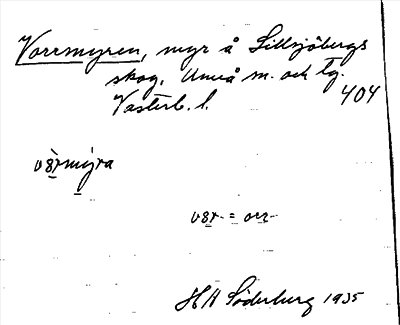 Vorrmyren, myr å Lillsjöbergs
skog, Umeå sn. och tg.
404
Västerb. l.
vȯrmyra
vȯr- = orr-
HH Söderberg 1935